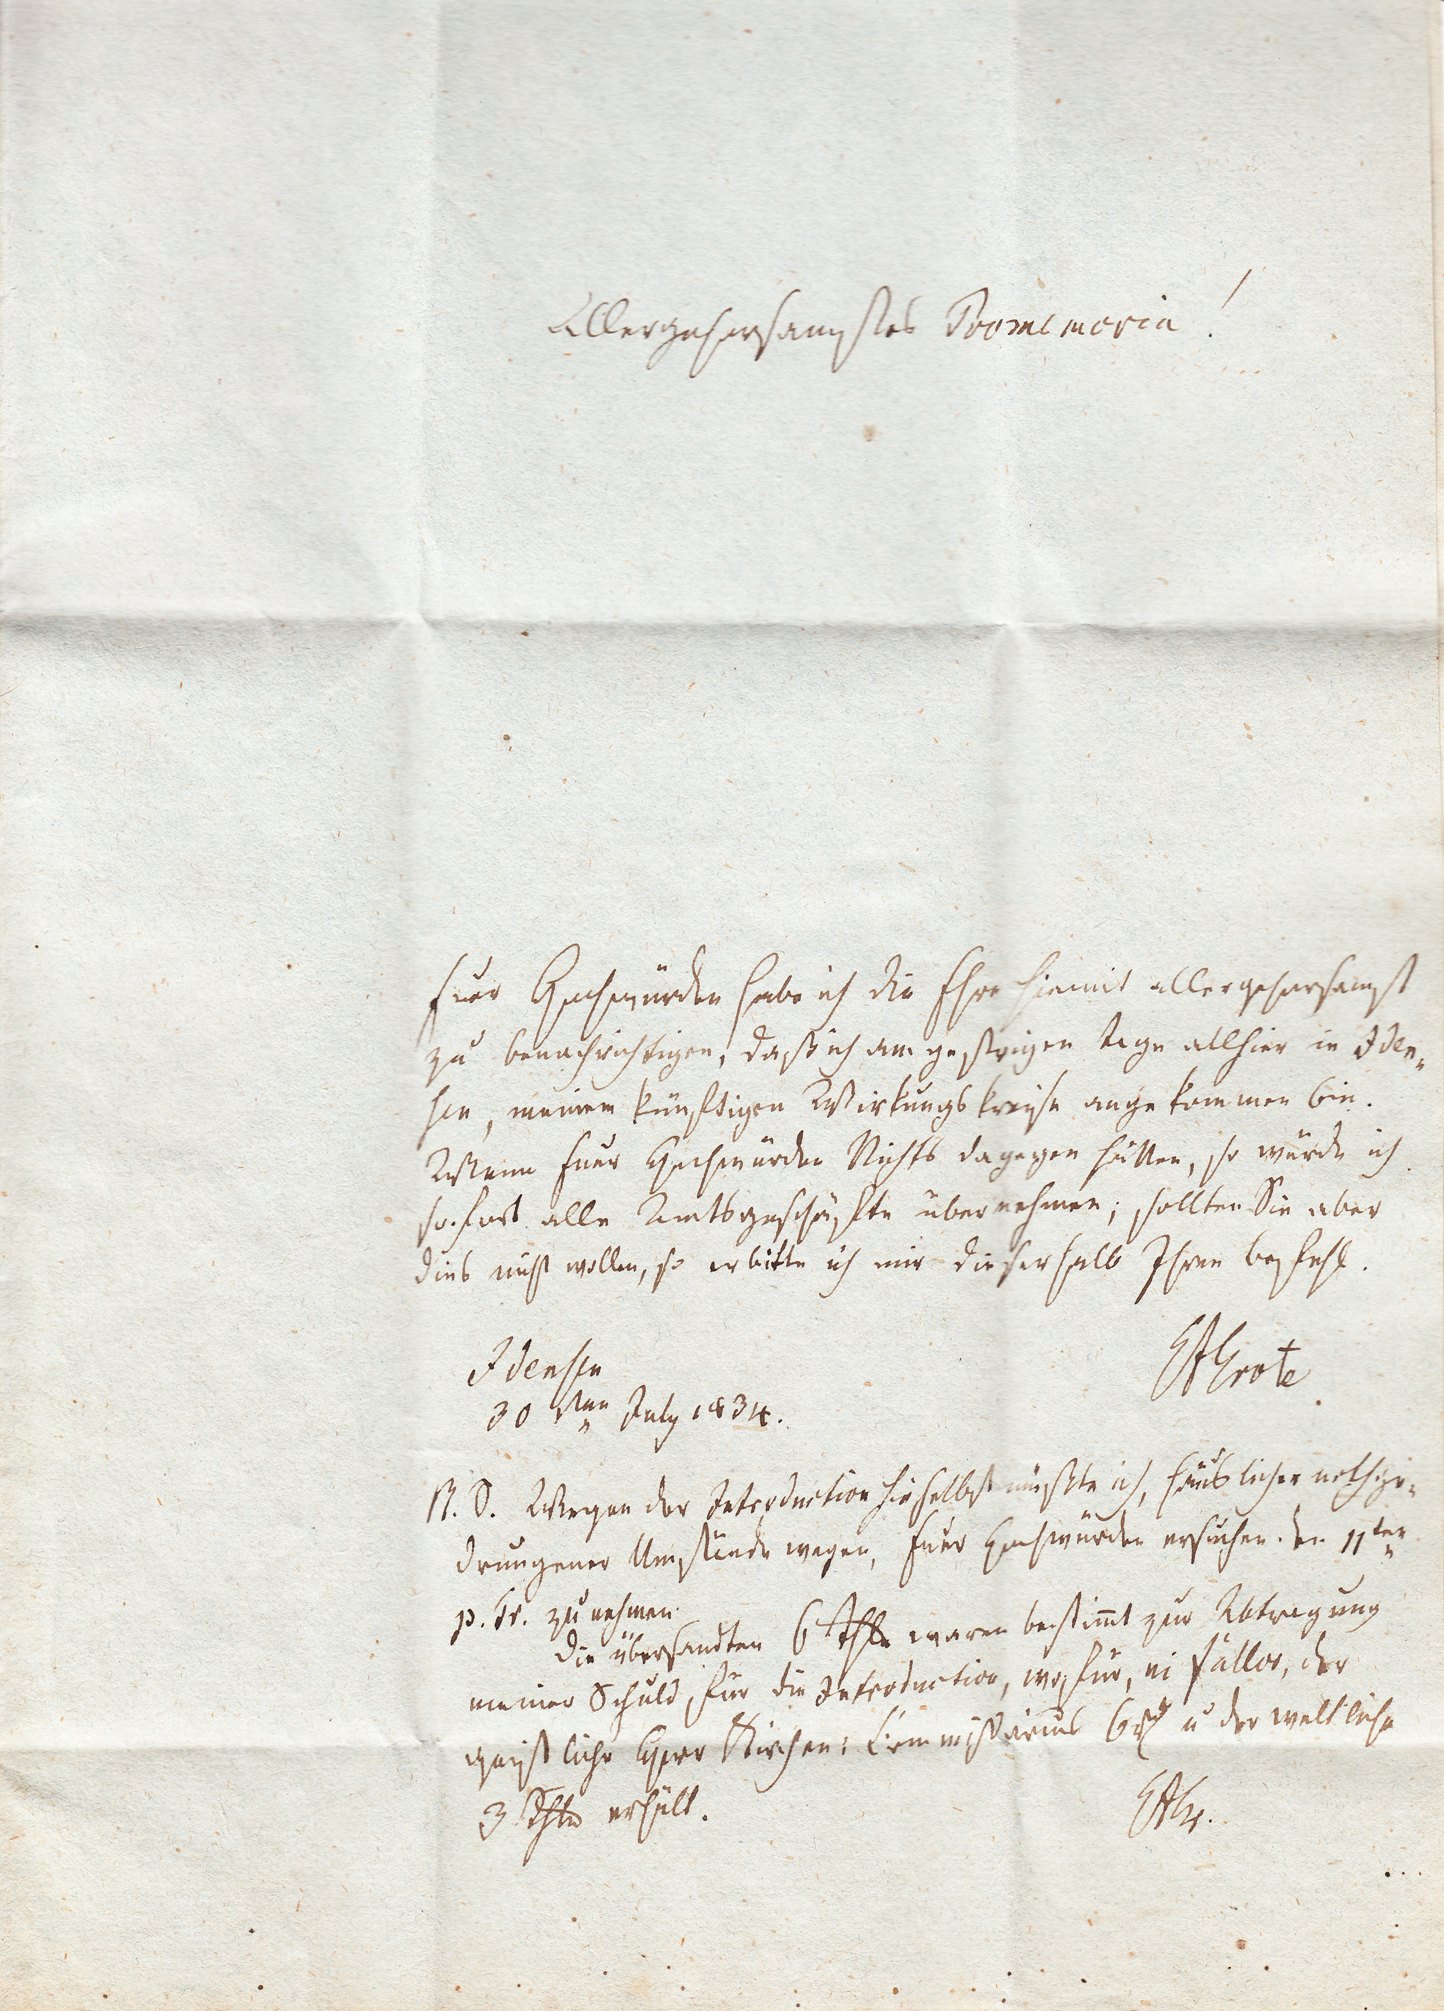 Allergehorsamstes Promemoria!
Euer Hochwürden habe ich die Ehre hiemit allergehorsamst
zu benachrichtigen, daß ich am gestrigen Tage allhier in Iden-
sen, meinem künftigen Wirkungskreise angekommen bin.
Wenn Euer Hochwürden Nichts dagegen hätten, so würde ich
sofort alle Amtsgeschäfte übernehmen; sollten Sie aber
dies nicht wollen, so erbitte ich mir dieserhalb Ihren Befehl.
Idensen
Grote
30sten July 1834.
N. S. Wegen der Introduction hieselbst müßte ich, häuslicher nothge-
drungener Umstände wegen, Euer Hochwürden ersuchen den 11ten
p. Tr. zu nehmen.
Die übersandten 6 Thlr waren bestimmt zur Abtragung
meiner Schuld, für die Introduction, wofür, der
geistliche Herr Kirchen: Commissarius 6 u der weltliche
3 Thlr erhält.